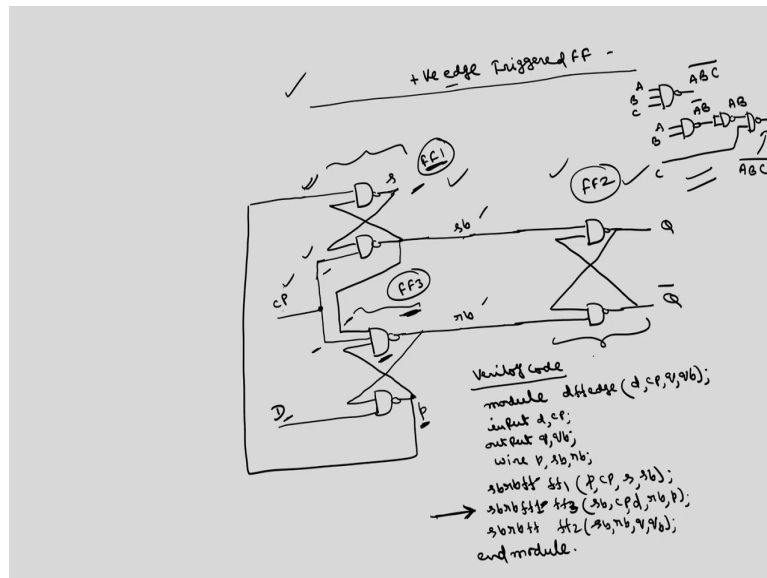 +ve edge Triggered FF -
A
B
C
ABC
A
B
AB
AB
C
ABC
FF1
s
FF2
sb
Q
CP
FF3
rb
Q
D
p
Verilog code
module dffedge (d, cp, q, qb);
input d, cp;
output q, qb;
wire p, sb, rb;
sbrbff ff1 (p, cp, s, sb);
sbrbff1 ff3 (sb, cp, d, rb, p);
sbrbff ff2 (sb, rb, q, qb);
end module.